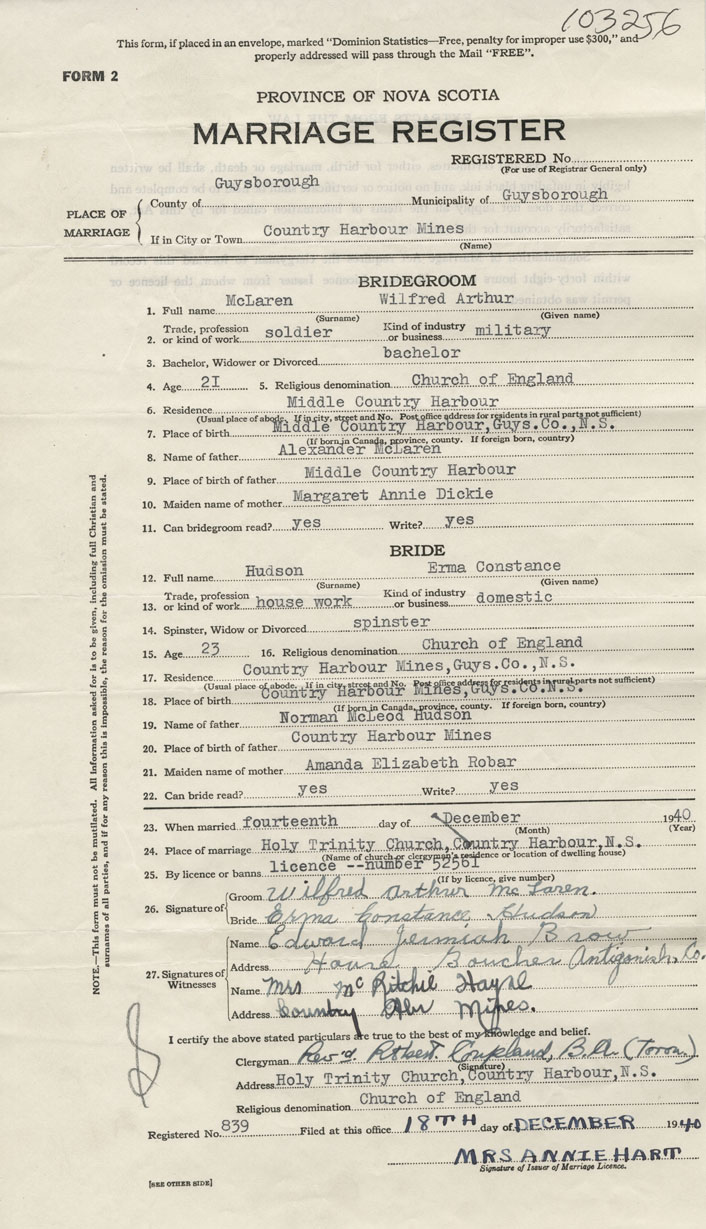 103256
This form, if placed in an envelope, marked "Dominion Statistics—Free, penalty for improper use $300," and
properly addressed will pass through the Mail "FREE".
FORM 2
PROVINCE OF NOVA SCOTIA
MARRIAGE REGISTER
REGISTERED No.
(For use of Registrar General only)
PLACE OF MARRIAGE
County of Guysborough Municipality of Guysborough
If in City or Town Country Harbour Mines
(Name)
BRIDEGROOM
1. Full name McLaren Wilfred Arthur
(Surname) (Given name)
2. Trade, profession or kind of work soldier Kind of industry or business military
3. Bachelor, Widower or Divorced bachelor
4. Age 2I 5. Religious denomination Church of England
6. Residence Middle Country Harbour
(Usual place of abode. If in city, street and No. Post office address for residents in rural parts not sufficient)
7. Place of birth Middle Country Harbour,Guys.Co.,N.S.
(If born in Canada, province, county. If foreign born, country)
8. Name of father Alexander McLaren
9. Place of birth of father Middle Country Harbour
10. Maiden name of mother Margaret Annie Dickie
11. Can bridegroom read? yes Write? yes
BRIDE
12. Full name Hudson Erma Constance
(Surname) (Given name)
13. Trade, profession or kind of work house work Kind of industry or business domestic
14. Spinster, Widow or Divorced spinster
15. Age 23 16. Religious denomination Church of England
17. Residence Country Harbour Mines,Guys.Co.,N.S.
(Usual place of abode. If in city, street and No. Post office address for residents in rural parts not sufficient)
18. Place of birth Country Harbour Mines,Guys.Co.N.S.
(If born in Canada, province, county. If foreign born, country)
19. Name of father Norman McLeod Hudson
20. Place of birth of father Country Harbour Mines
21. Maiden name of mother Amanda Elizabeth Robar
22. Can bride read? yes Write? yes
23. When married fourteenth day of December 1940
(Month) (Year)
24. Place of marriage Holy Trinity Church,Country Harbour,N.S.
(Name of church or clergyman's residence or location of dwelling house)
25. By licence or banns licence --number 52561
(If by licence, give number)
26. Signature of
Groom Wilfred Arthur McLaren.
Bride Erma Constance Hudson
27. Signatures of Witnesses
Name Edward Jermiah Brow
Address Havre Boucher Antigonish, Co.
Name Mrs Mc Ritchie Hayne
Address Country Hbr Mines.
I certify the above stated particulars are true to the best of my knowledge and belief.
Clergyman Rev'd Robert Copland, B.A. (Toron.)
(Signature)
Address Holy Trinity Church,Country Harbour,N.S.
Religious denomination Church of England
Registered No. 839 Filed at this office 18TH day of DECEMBER 1940
MRS ANNIE HART
Signature of Issuer of Marriage Licence.
[SEE OTHER SIDE]
NOTE.—This form must not be mutilated. All information asked for is to be given, including full Christian and
surnames of all parties, and if for any reason this is impossible, the reason for the omission must be stated.